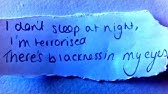 I don't sleep at night,
I'm terrorised
There's blackness in my eyes